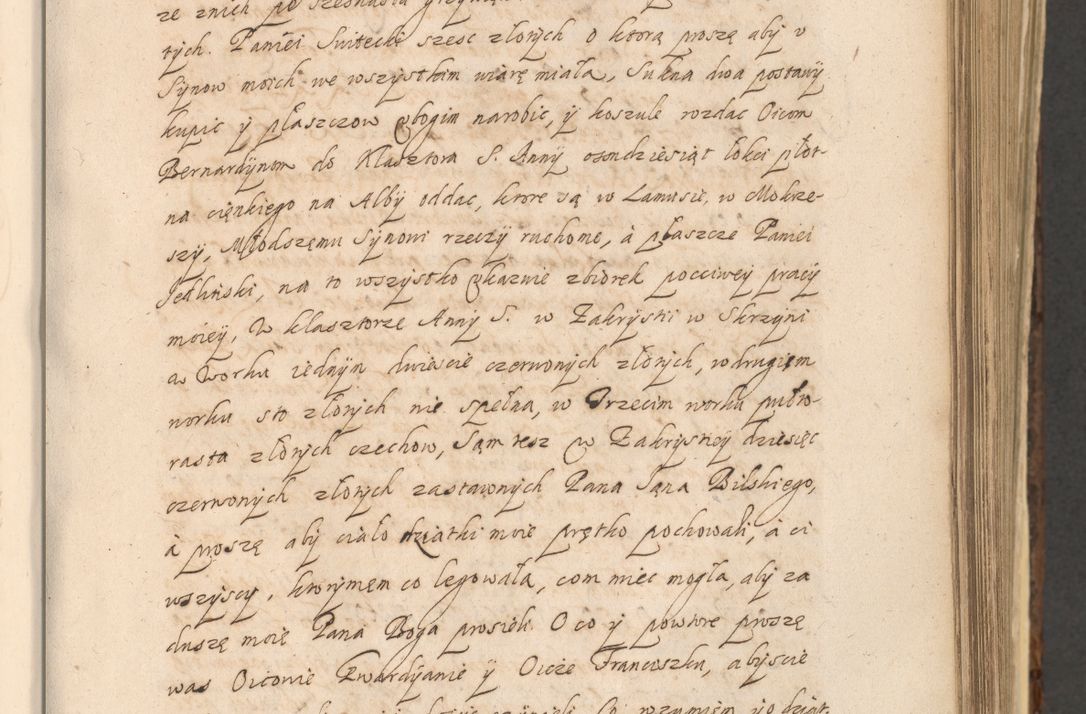 ze znich po szesnascia grzywien
tÿch. Paniei Suitecki szesc złotÿch o ktorą proszę abÿ v
Sÿnow moich we wszÿstkim wiarę miała, Sukna dwa postawÿ
kupic ÿ płaszczow vbogim narobic, ÿ koszule rozdac Oicom
Bernardÿnom do Klasztora S. Annÿ osmdziesiąt łokci płot-
na cięnkiego na Albÿ oddac, ktore są w Lamusie, w Mokrze-
szÿ, Młodszęmu Sÿnowi rzeczÿ ruchome, à płaszcze Paniei
Jedliński, na to wszÿstko vkazuie zbiorek poccivey pracÿ
moieÿ, W klasztorze Annÿ S. w Zakrÿstii w Skrzÿni
a w Worku iednÿm dwiescie czerwonÿch złotÿch, w drugięm
worku sto złotÿch nie spełna, w Trzecim worku pułto-
rasta złotÿch czechow, Sąm tesz w Zakrÿstieÿ dziesięc
czerwonÿch złotÿch zastawnÿch Pana Jąna Bilskiego,
à proszę abÿ ciało dziatki moie prętko pochowali, à ci
wszÿscy, ktorÿmem co legowała, com miec mogła, abÿ za
duszę moię Pana Boga prosieli O co ÿ powtore proszę
was Oicowie Gwardÿanie ÿ Oicze Franciszku, abÿscie